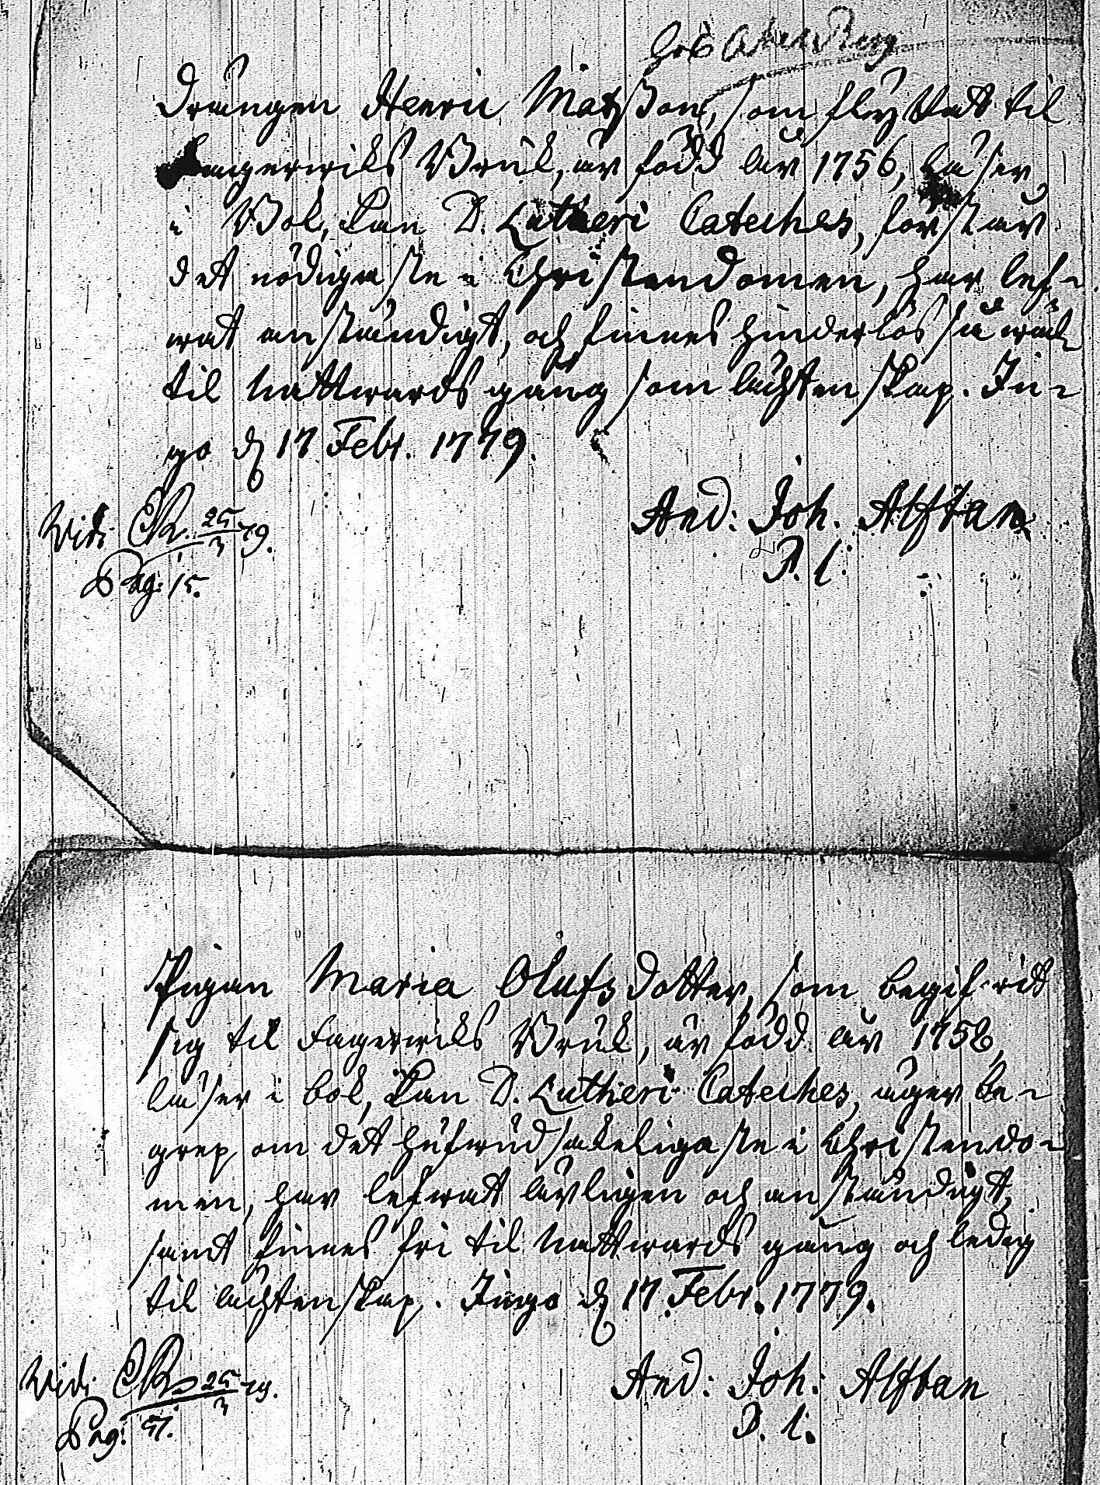 hos
Drängen Henric Matsson, som flyttat til
Fagerwiks Bruk, är född år 1756, läser
i Bok, kan D. Lutheri Cateches, förstår
det nödigaste i Christendomen, har lef-
wat anständigt, och finnes hinderlös så wäl
til Nattwards gång som ächtenskap. In-
go d. 17 Febr. 1779.
And: Joh. Alftan
P. l:
Vidi 25/3 79.
Pag: 15.
Pigan Maria Olufsdotter, som begifwit
sig til Fagerwiks Bruk, är född år 1758,
läser i bok, kan D. Lutheri Cateches, äger be-
grep om det hufwudsakeligaste i Christendo-
men, har lefwat ärligen och anständigt,
samt finnes fri til Nattwards gång och ledig
til ächtenskap. Ingo d. 17. Febr. 1779.
And: Joh: Alftan
P. l.
Vidi 25/3 79.
Pag: 51.